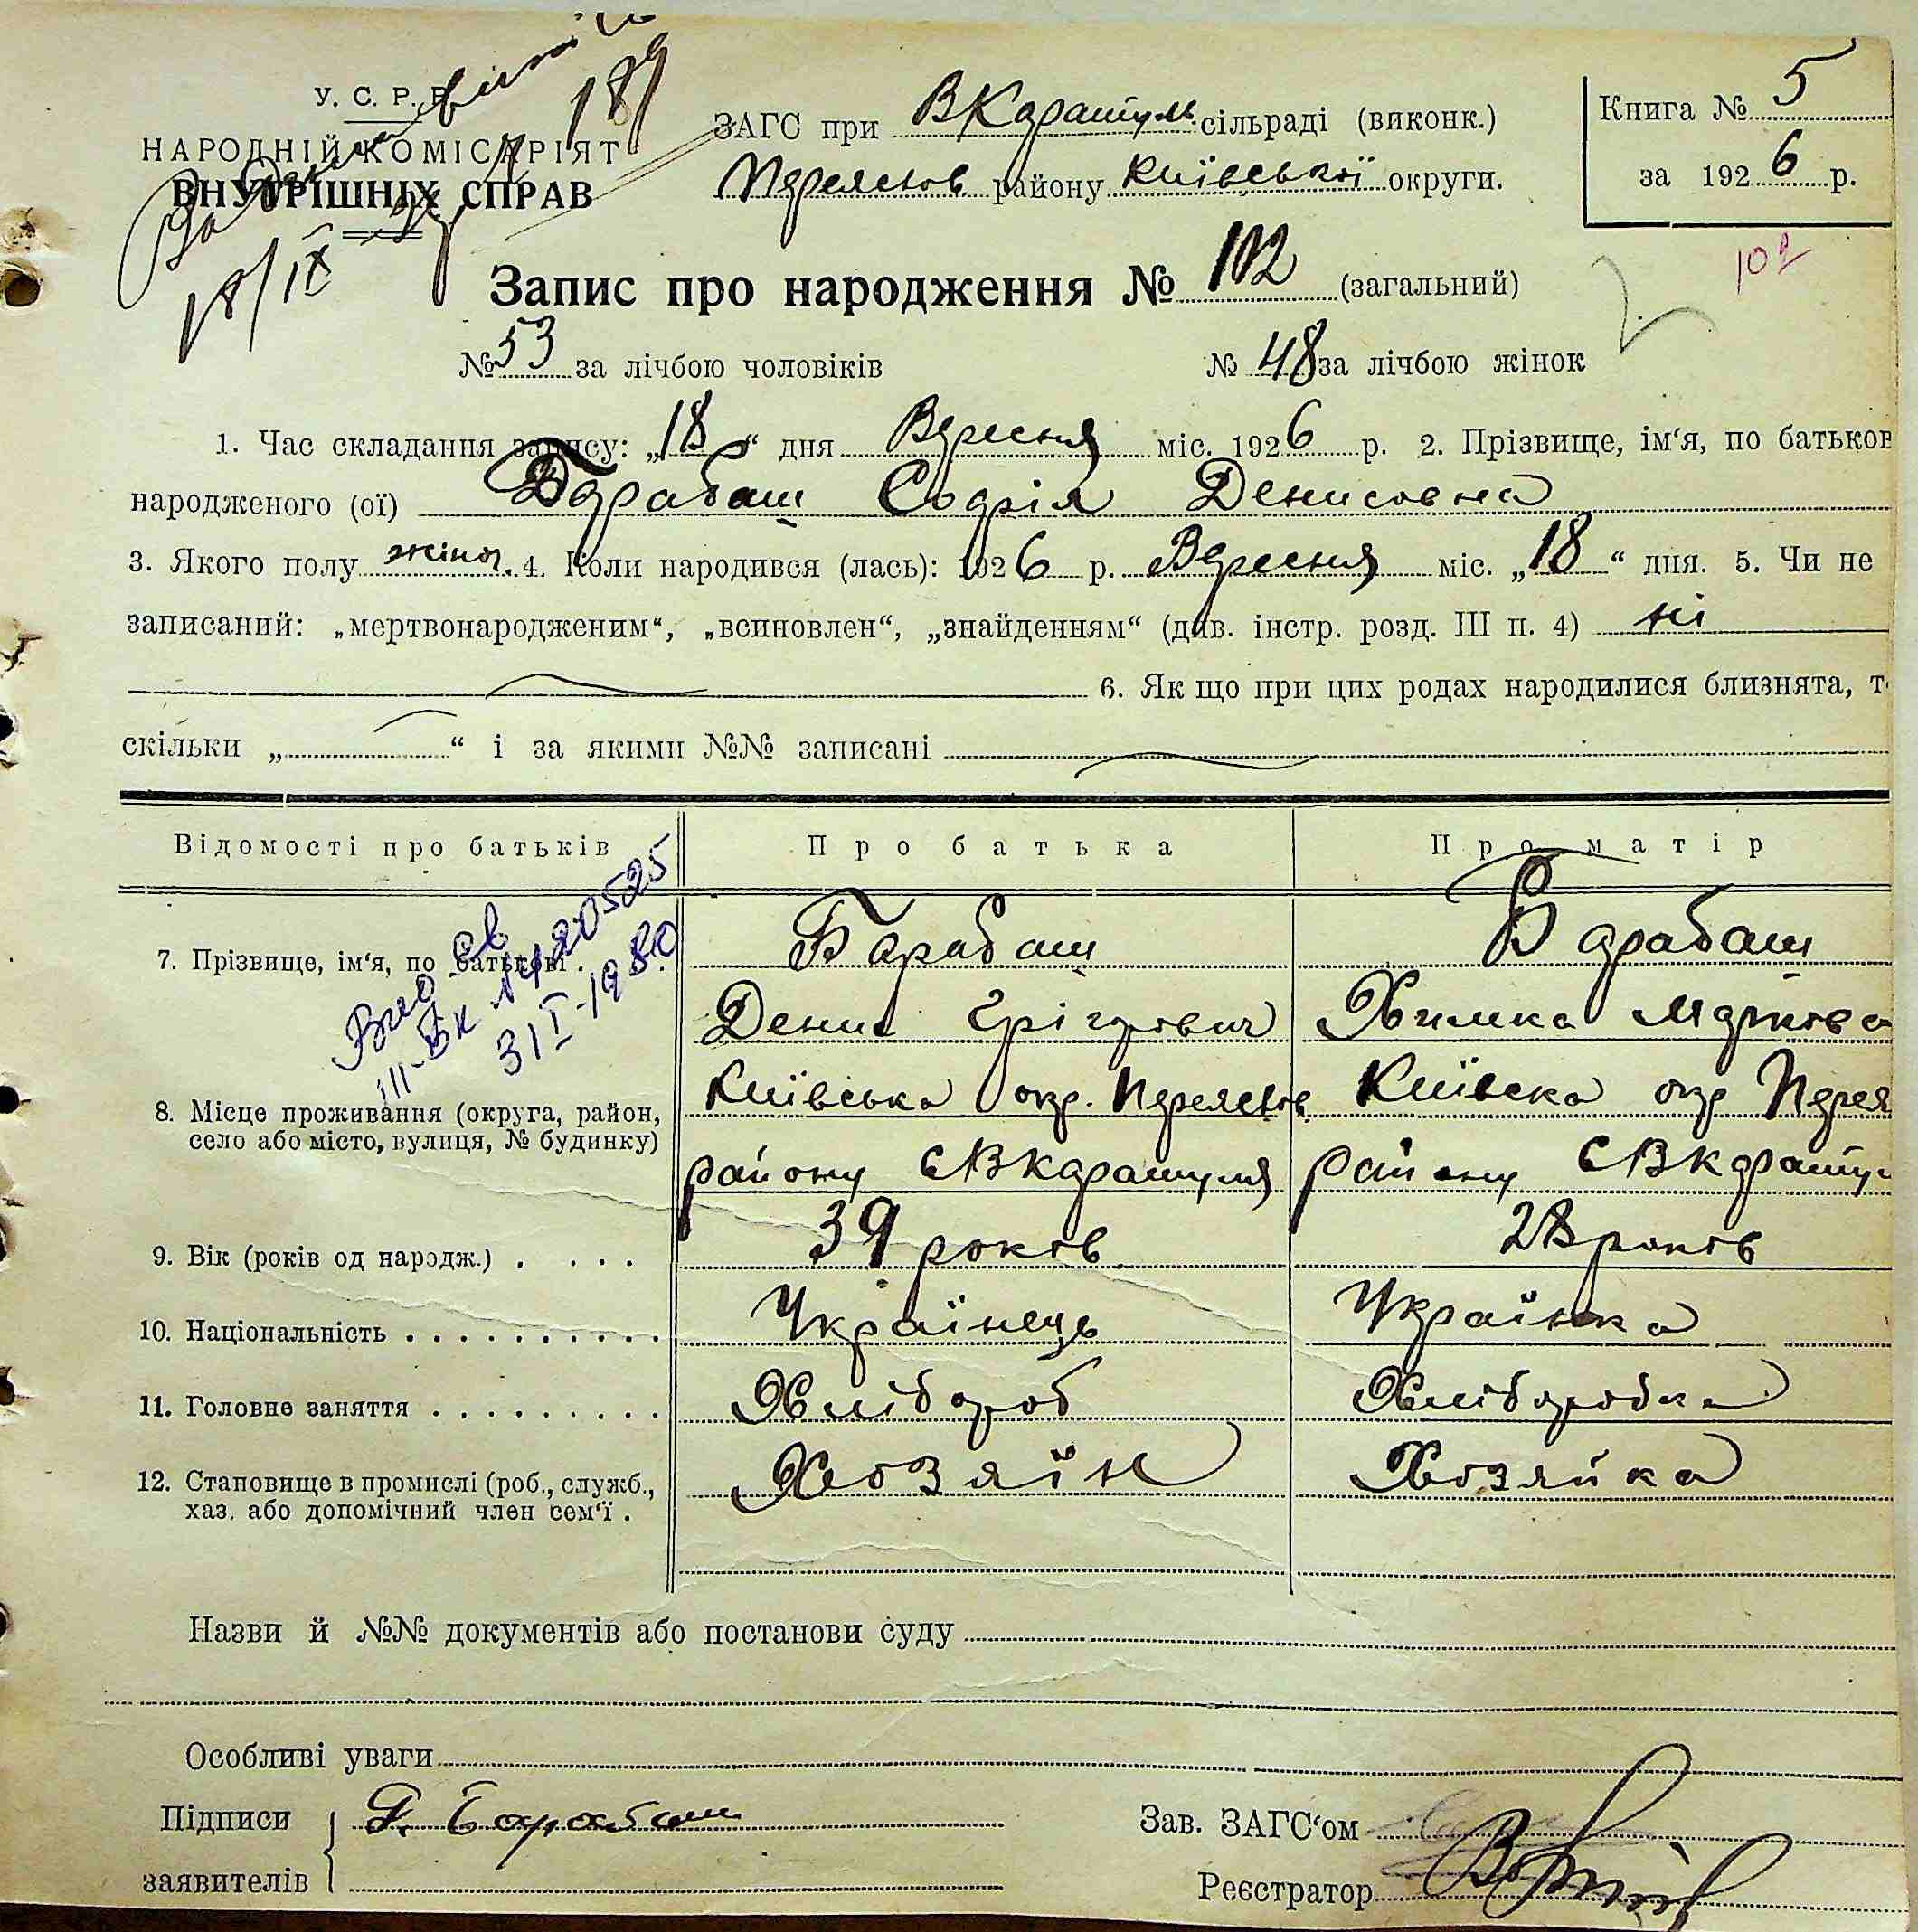 У. С. Р. Р.
НАРОДНІЙ КОМІСАРІЯТ
ВНУТРІШНІХ СПРАВ
189
18/IX
ЗАГС при ВКаратуль сільраді (виконк.)
Переяслов району Київської округи.
Книга № 5
за 1926 р.
102
Запис про народження № 102 (загальний)
№ 53 за лічбою чоловіків № 48 за лічбою жінок
1. Час складання запису: „18“ дня Вересня міс. 1926 р. 2. Прізвище, ім'я, по батьков
народженого (ої) Барабаш Софія Денисовна
3. Якого полу жіноч. 4. Коли народився (лась): 1926 р. Вересня міс. „18“ дня. 5. Чи не
записаний: „мертвонародженим“, „всиновлен“, „знайденням“ (див. інстр. розд. III п. 4) ні
6. Як що при цих родах народилися близнята, т
скільки „ “ і за якими №№ записані
Відомості про батьків Про батька Про матір
7. Прізвище, ім'я, по батькові . Барабаш Барабаш
Денис Грігорович Химка Маркова
Вид. св
III-БК № 420525
31 I-1980
8. Місце проживання (округа, район, Київська окр. Переяслов. Київска окр Перея
село або місто, вулиця, № будинку) району с ВКаратуля району с ВКарату
9. Вік (років од народж.) . . . . 39 років 28 років
10. Національність . . . . . . . . . . . Українець Українка
11. Головне заняття . . . . . . . . . Хлібороб Хліборобка
12. Становище в промислі (роб., служб., Хозяїн Хозяйка
хаз. або допомічний член сем'ї .
Назви й №№ документів або постанови суду
Особливі уваги
Підписи Барабаш
заявителів
Зав. ЗАГС'ом
Реєстратор